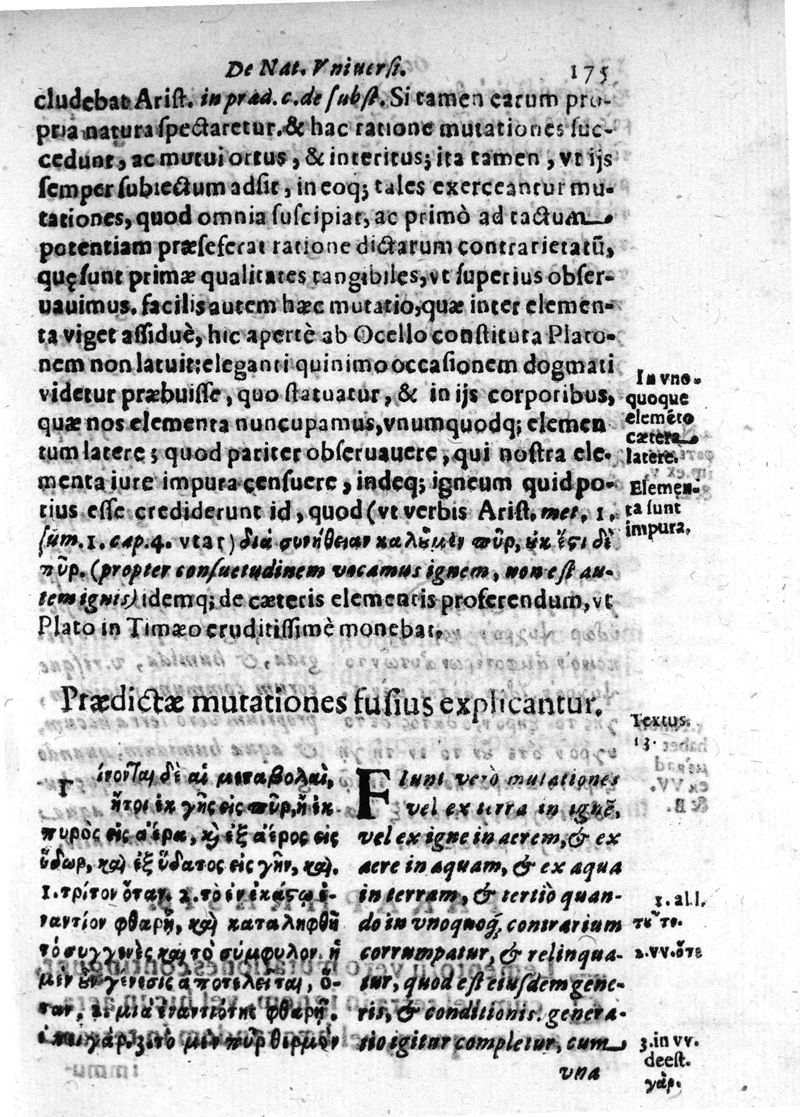 De Nat. Vniuersi. 175
cludebat Arist. in præd. c. de subst. Si tamen earum pro-
pria natura spectaretur, & hac ratione mutationes suc-
cedunt, ac mutui ortus, & interitus; ita tamen, vt ijs
semper subiectum adsit, in eoq; tales exerceantur mu-
tationes, quod omnia suscipiat, ac primò ad tactum
potentiam præseferat ratione dictarum contrarietatũ,
quę sunt primæ qualitates tangibiles, vt superius obser-
uauimus. facilis autem hæc mutatio, quæ inter elemen-
ta viget assiduè, hic apertè ab Ocello constituta Plato-
nem non latuit: eleganti quinimo occasionem dogmati
videtur præbuisse, quo statuatur, & in ijs corporibus,
quæ nos elementa nuncupamus, vnumquodq; elemen
tum latere; quod pariter obseruauere, qui nostra ele-
menta iure impura censuere, indeq; igneum quid po-
tius esse crediderunt id, quod (vt verbis Arist. met. 1.
sum. 1. cap. 4. vtar) διὰ συνήθειαν καλοῦμεν πῦρ, οὐκ ἔστι δὲ
πῦρ. (propter consuetudinem vocamus ignem, non est au-
tem ignis) idemq; de cæteris elementis proferendum, vt
Plato in Timæo eruditissimè monebat.
In vno-
quoque
elemẽto
cætera
latere.
Elemen-
ta sunt
impura.
Prædictæ mutationes fusius explicantur.
Textus.
13.
Γίνονται δὲ αἱ μεταβολαὶ,
ἤτοι ἐκ γῆς εἰς πῦρ, ἢ ἐκ
πυρὸς εἰς ἀέρα, καὶ ἐξ ἀέρος εἰς
ὕδωρ, καὶ ἐξ ὕδατος εἰς γῆν, καὶ.
1. τρίτον ὅταν. 2. τὸ ἐν ἑκάστῳ ἐ-
ναντίον φθαρῇ, καὶ καταληφθῇ
τὸ συγγενὲς καὶ τὸ σύμφυλον. ἡ
μὲν οὖν γένεσις ἀποτελεῖται, ὅ-
ταν, αἱ μία ἐναντιότης φθαρῇ.
ἐπεὶ γάρ. 3. τὸ μὲν πῦρ θερμὸν
Fiunt verò mutationes
vel ex terra in ignẽ,
vel ex igne in aerem, & ex
aere in aquam, & ex aqua
in terram, & tertiò quan-
do in vnoquoq; contrarium
corrumpatur, & relinqua-
tur, quod est eiusdem gene-
ris, & conditionis. genera-
tio igitur completur, cum
vna
1. al. l.
2. vv. ὅτε
3. in vv.
deest.
γὰρ.